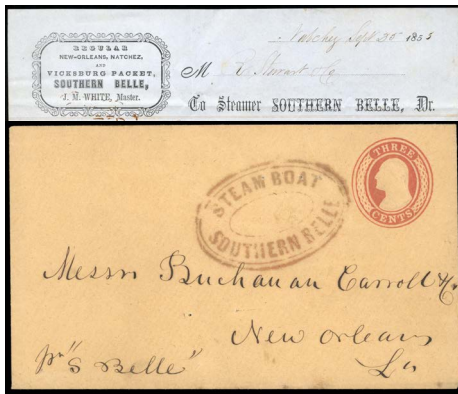 REGULAR
NEW-ORLEANS, NATCHEZ,
AND
VICKSBURG PACKET,
SOUTHERN BELLE,
J. M. WHITE, Master.
Natchez Sept 20 1855
M Stewart & Co
To Steamer SOUTHERN BELLE, Dr.
STEAM BOAT
SOUTHERN BELLE
THREE
CENTS
Messrs Buchanan Carroll & Co
New Orleans
La
pr "S Belle"